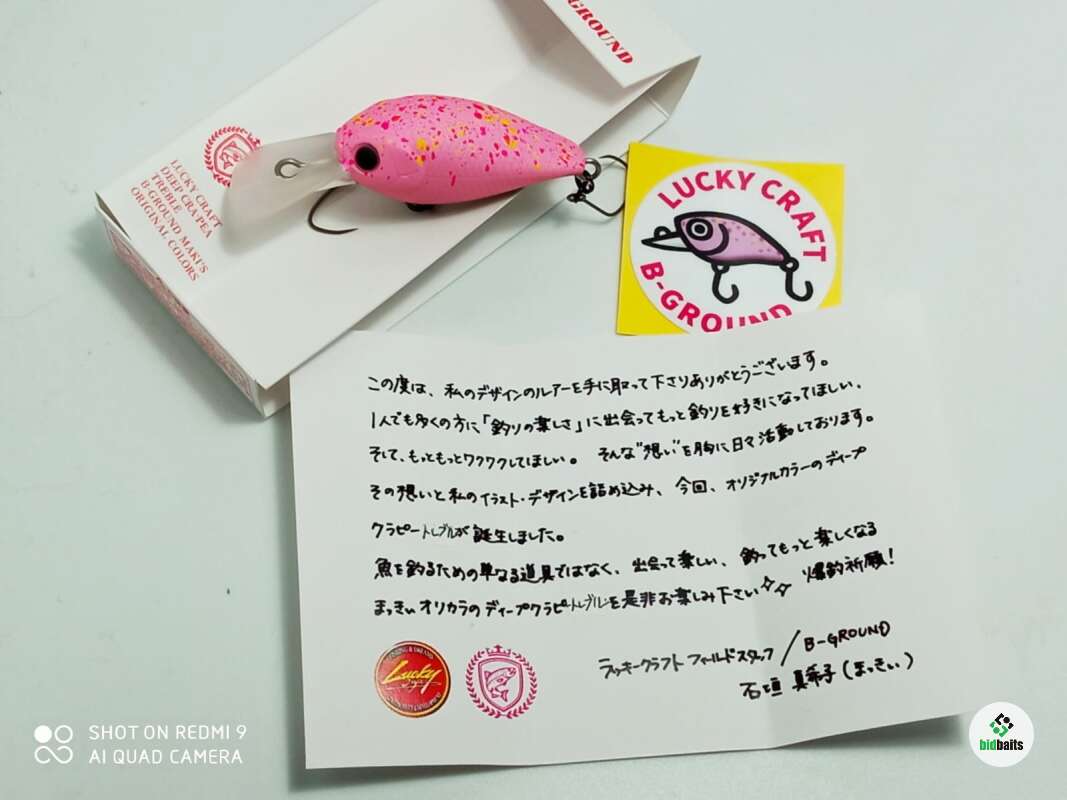 B-GROUND
LUCKY CRAFT
DEEP CRA'PEA
TREBLE
B-GROUND MAKI'S
ORIGINAL COLORS
LUCKY CRAFT
B-GROUND
この度は、私のデザインのルアーを手に取って下さりありがとうございます。
1人でも多くの方に「釣りの楽しさ」に出会ってもっと釣りを好きになってほしい、
そして、もっともっとワクワクしてほしい。 そんな"想い"を胸に日々活動しております。
その想いと私のイラスト・デザインを詰め込み、今回、オリジナルカラーのディープ
クラピートレブルが誕生しました。
魚を釣るための単なる道具ではなく、出会って楽しい、釣ってもっと楽しくなる
まっきぃオリカラのディープクラピートレブルを是非お楽しみ下さい 爆釣祈願!
ラッキークラフト フィールドスタッフ / B-GROUND
石垣 真希子(まっきぃ)
Lucky
SHOT ON REDMI 9
AI QUAD CAMERA
bidbaits